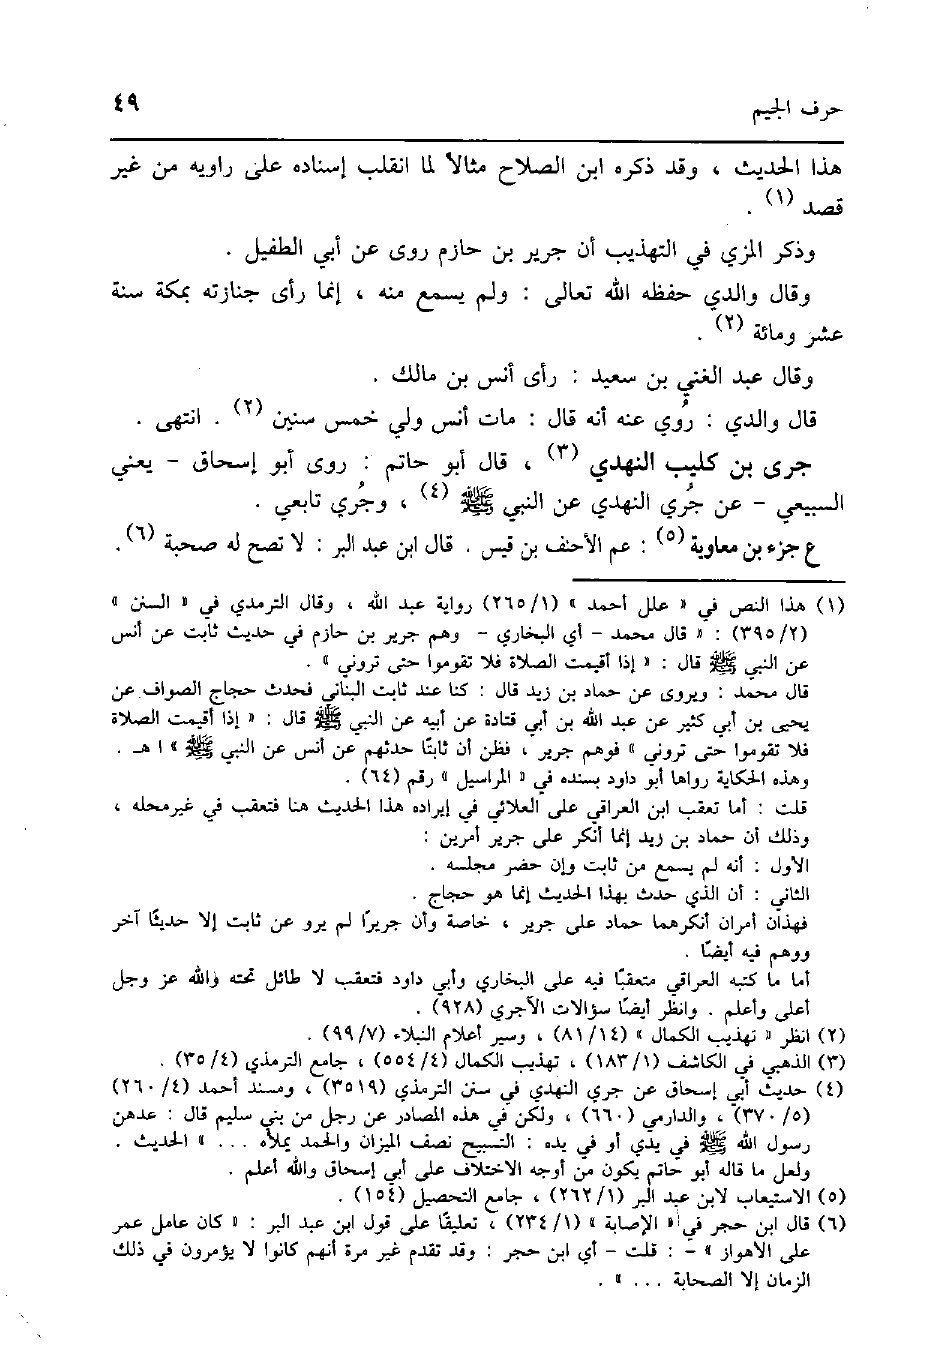 حرف الجيم ٤٩
هذا الحديث ، وقد ذكره ابن الصلاح مثالاً لما انقلب إسناده على راويه من غير
قصد (١) .
وذكر المزي في التهذيب أن جرير بن حازم روى عن أبي الطفيل .
وقال والدي حفظه الله تعالى : ولم يسمع منه ، إنما رأى جنازته بمكة سنة
عشر ومائة (٢) .
وقال عبد الغني بن سعيد : رأى أنس بن مالك .
قال والدي : رُوي عنه أنه قال : مات أنس ولي خمس سنين (٢) . انتهى .
جرى بن كليب النهدي (٣) ، قال أبو حاتم : روى أبو إسحاق - يعني
السبيعي - عن جُري النهدي عن النبي ﷺ (٤) ، وجُري تابعي .
ع جزء بن معاوية (٥) : عم الأحنف بن قيس . قال ابن عبد البر : لا تصح له صحبة (٦) .
(١) هذا النص في « علل أحمد » (١/٢٦٥) رواية عبد الله ، وقال الترمذي في « السنن »
(٢/٣٩٥) : « قال محمد - أي البخاري - وهم جرير بن حازم في حديث ثابت عن أنس
عن النبي ﷺ قال : « إذا أقيمت الصلاة فلا تقوموا حتى تروني » .
قال محمد : ويروى عن حماد بن زيد قال : كنا عند ثابت البناني فحدث حجاج الصواف عن
يحيى بن أبي كثير عن عبد الله بن أبي قتادة عن أبيه عن النبي ﷺ قال : « إذا أقيمت الصلاة
فلا تقوموا حتى تروني » فوهم جرير ، فظن أن ثابتًا حدثهم عن أنس عن النبي ﷺ » ا هـ .
وهذه الحكاية رواها أبو داود بسنده في « المراسيل » رقم (٦٤) .
قلت : أما تعقب ابن العراقي على العلائي في إيراده هذا الحديث هنا فتعقب في غير محله ،
وذلك أن حماد بن زيد إنما أنكر على جرير أمرين :
الأول : أنه لم يسمع من ثابت وإن حضر مجلسه .
الثاني : أن الذي حدث بهذا الحديث إنما هو حجاج .
فهذان أمران أنكرهما حماد على جرير ، خاصة وأن جريرًا لم يرو عن ثابت إلا حديثًا آخر
ووهم فيه أيضًا .
أما ما كتبه العراقي متعقبًا فيه على البخاري وأبي داود فتعقب لا طائل تحته والله عز وجل
أعلى وأعلم . وانظر أيضًا سؤالات الآجري (٩٢٨) .
(٢) انظر « تهذيب الكمال » (١٤/٨١) ، وسير أعلام النبلاء (٧/٩٩) .
(٣) الذهبي في الكاشف (١/١٨٣) ، تهذيب الكمال (٤/٥٥٤) ، جامع الترمذي (٤/٣٥) .
(٤) حديث أبي إسحاق عن جري النهدي في سنن الترمذي (٣٥١٩) ، ومسند أحمد (٤/٢٦٠)
(٥/٣٧٠) ، والدارمي (٦٦٠) ، ولكن في هذه المصادر عن رجل من بني سليم قال : عدهن
رسول الله ﷺ في يدي أو في يده : التسبيح نصف الميزان والحمد يملأه ... » الحديث .
ولعل ما قاله أبو حاتم يكون من أوجه الاختلاف على أبي إسحاق والله أعلم .
(٥) الاستيعاب لابن عبد البر (١/٢٦٢) ، جامع التحصيل (١٥٤) .
(٦) قال ابن حجر في « الإصابة » (١/٢٣٤) ، تعليقًا على قول ابن عبد البر : « كان عامل عمر
على الأهواز » - : قلت - أي ابن حجر : وقد تقدم غير مرة أنهم كانوا لا يؤمرون في ذلك
الزمان إلا الصحابة ... » .